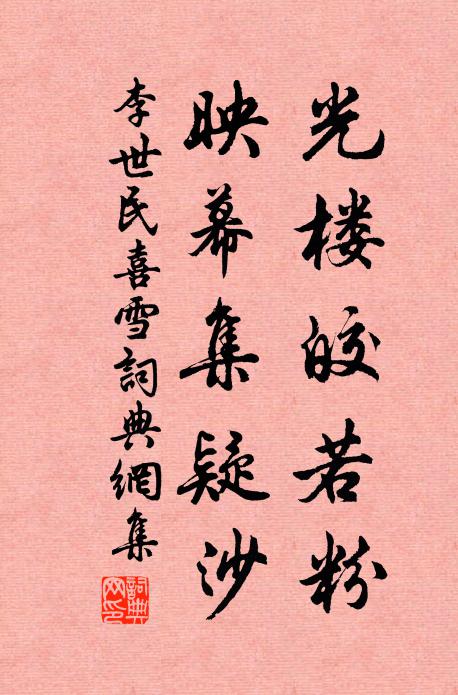 光楼皎若粉
映幕集疑沙
李世民喜雪詞典網集
詞典网印